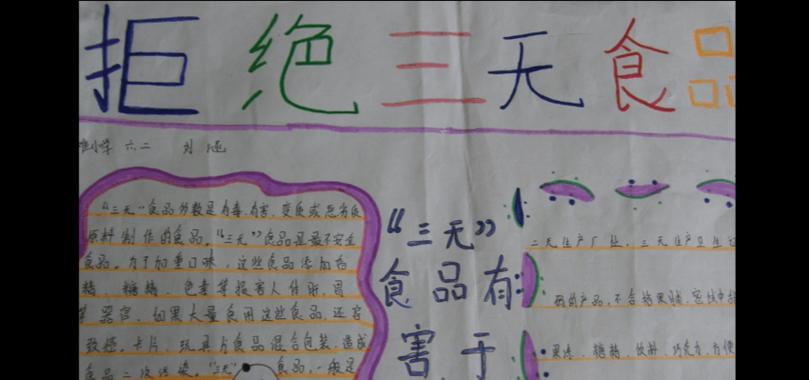 拒绝三天食品
小学 六二 刘
“三无”食品多数是有毒、有害、变质或恶劣的
原料制作的食品。“三无”食品是最不安全
食品，为了加重口味，这些食品添加香
精、糖精、色素等损害人体肝、胃
等器官，如果大量食用这些食品，还容
致癌。卡片、玩具与食品混合包装，造成
食品二次污染。“三无”食品，一般是
“三无”
食品有
害于
一无生产厂址，二无生产卫生
码的产品，不合格果冻，
果冻、糖精、饮料、巧克力、方便